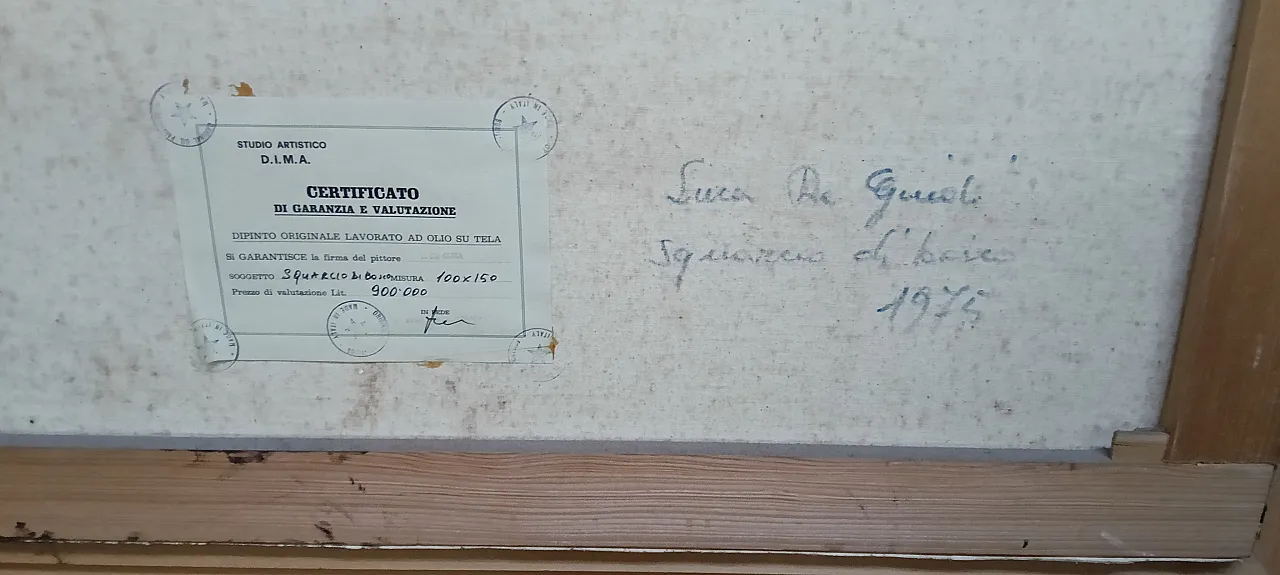 STUDIO ARTISTICO
D.I.M.A.
CERTIFICATO
DI GARANZIA E VALUTAZIONE
DIPINTO ORIGINALE LAVORATO AD OLIO SU TELA
Si GARANTISCE la firma del pittore
SOGGETTO SQUARCIO DI BOSCO MISURA 100x150
Prezzo di valutazione Lit. 900.000
IN FEDE
MADE IN ITALY
Luca De Guidi
Squarcio di bosco
1975